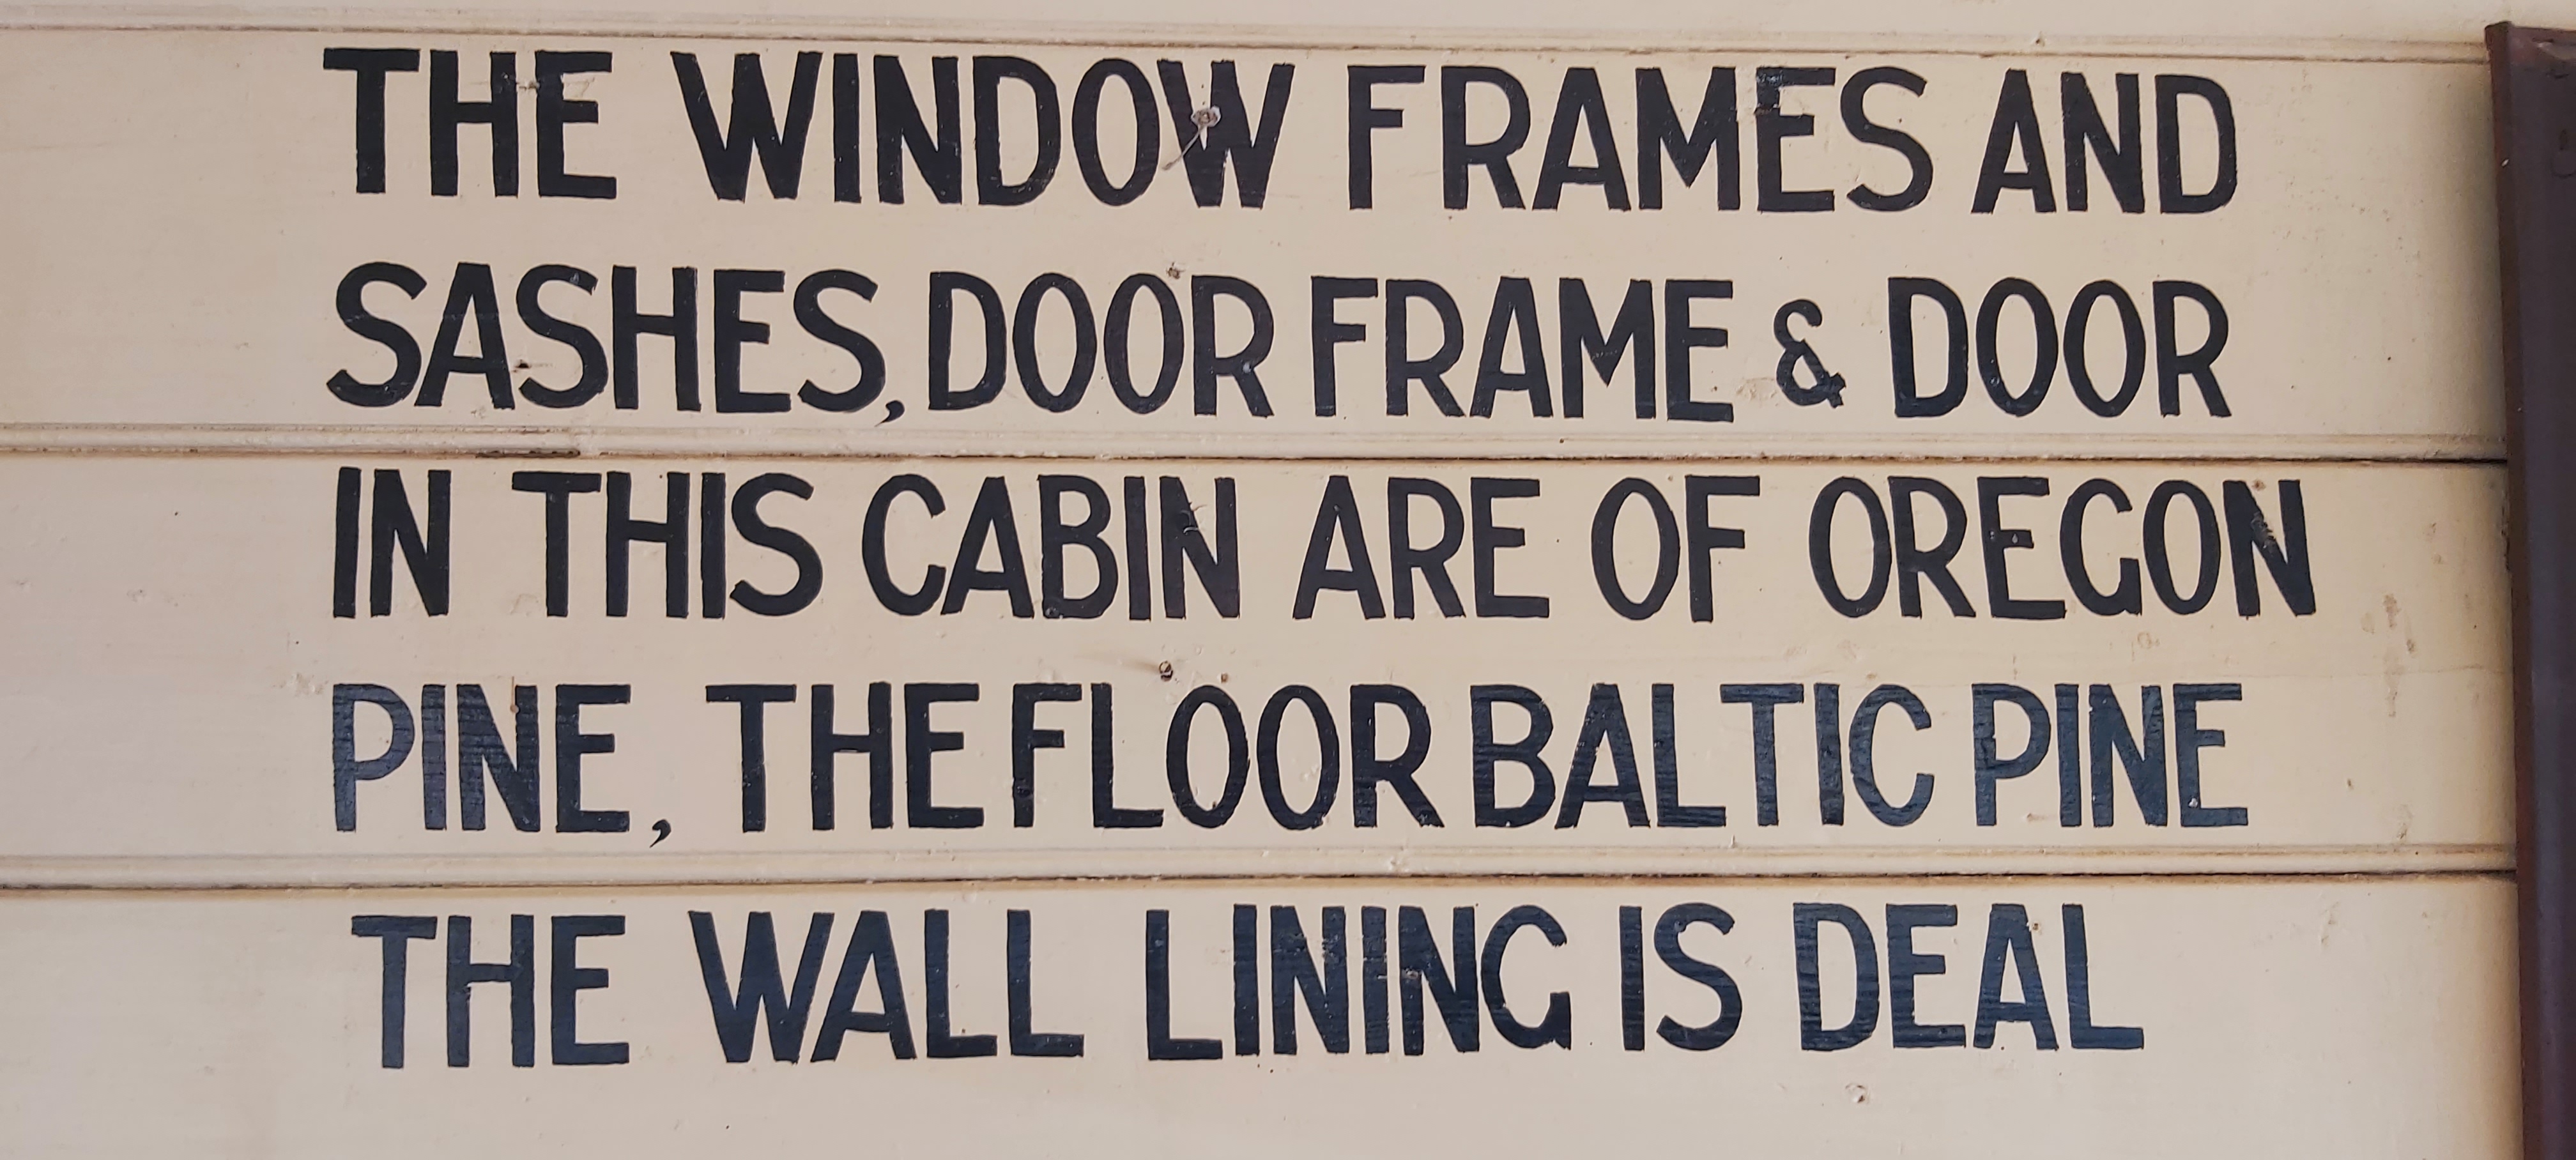 THE WINDOW FRAMES AND
SASHES, DOOR FRAME & DOOR
IN THIS CABIN ARE OF OREGON
PINE, THE FLOOR BALTIC PINE
THE WALL LINING IS DEAL